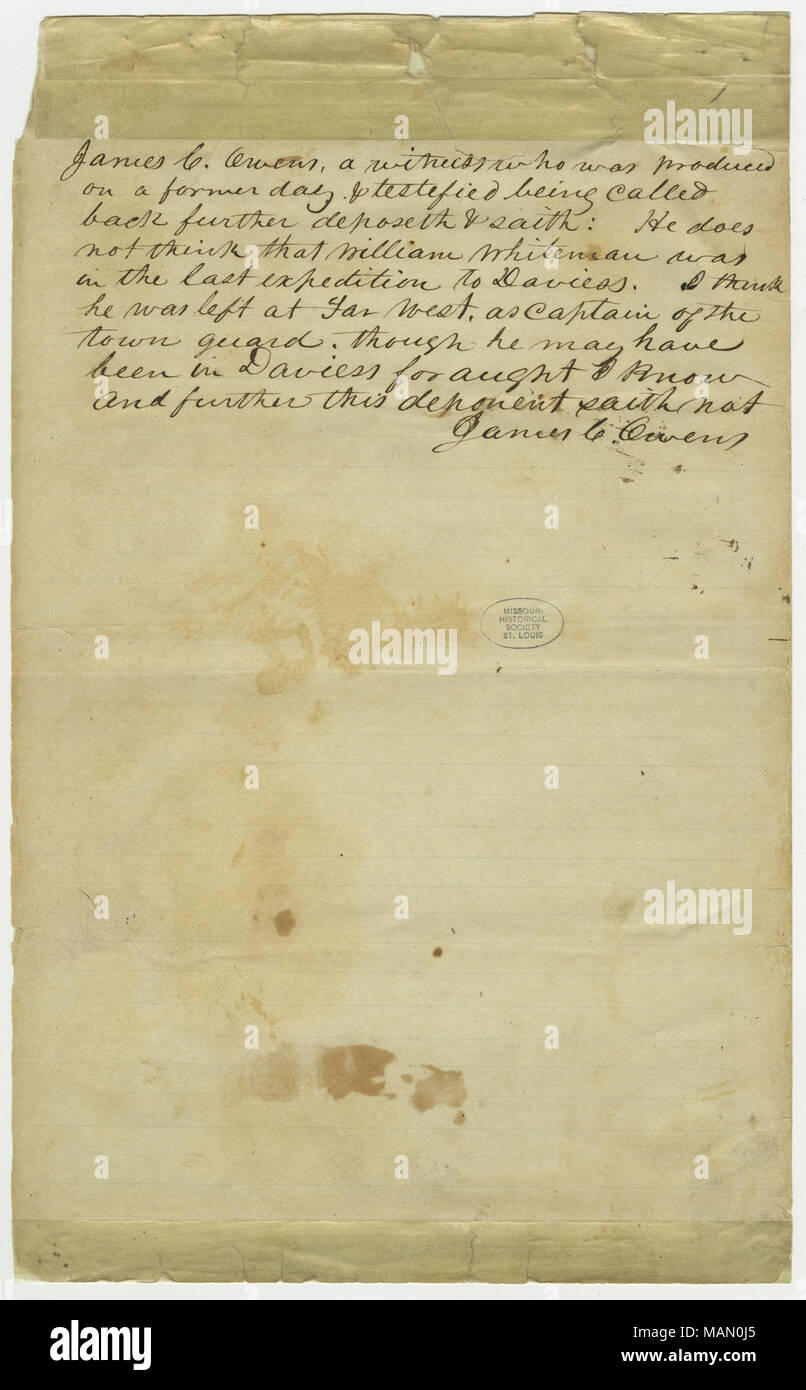 James C. Owens, a witness who was produced
on a former day & testefied being called
back further deposeth & saith: He does
not think that William Whiteman was
in the last expedition to Daviess. I think
he was left at Far West, as Captain of the
town guard. though he may have
been in Daviess for aught I know
And further this deponent saith not
James C. Owens
MISSOURI
HISTORICAL
SOCIETY
ST. LOUIS
alamy
alamy
a
a
a
a
a
a
a
a
a
a
a
a
alamy
Image ID: MAN0J5
www.alamy.com